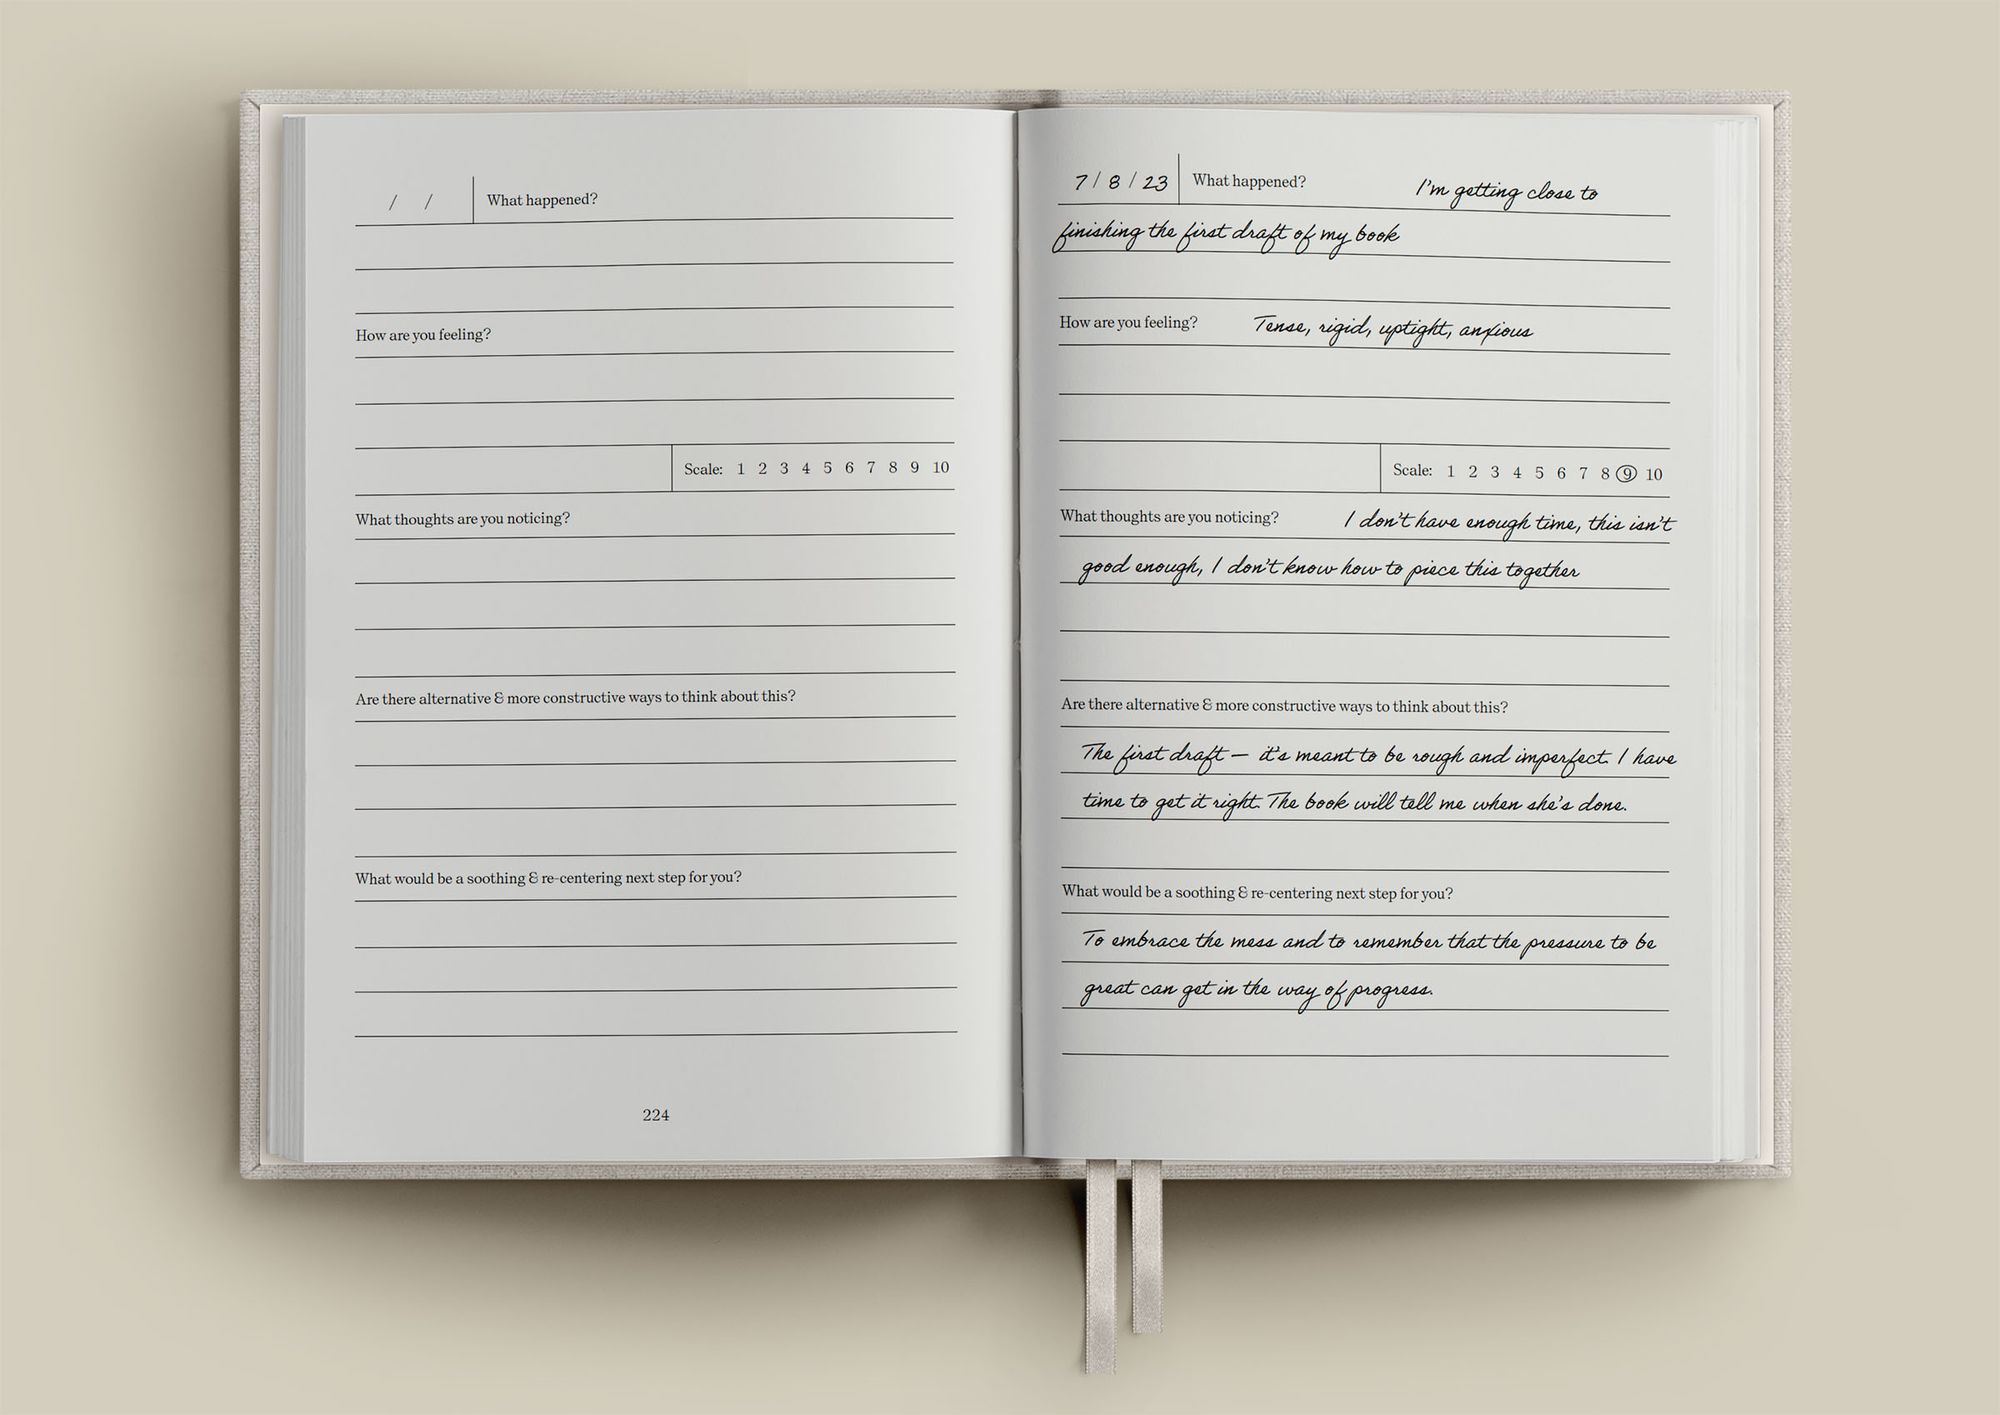 / / What happened?
How are you feeling?
Scale: 1 2 3 4 5 6 7 8 9 10
What thoughts are you noticing?
Are there alternative & more constructive ways to think about this?
What would be a soothing & re-centering next step for you?
224
7 / 8 / 23 What happened? I'm getting close to
finishing the first draft of my book
How are you feeling? Tense, rigid, uptight, anxious
Scale: 1 2 3 4 5 6 7 8 9 10
What thoughts are you noticing? I don't have enough time, this isn't
good enough, I don't know how to piece this together
Are there alternative & more constructive ways to think about this?
The first draft — it's meant to be rough and imperfect. I have
time to get it right. The book will tell me when she's done.
What would be a soothing & re-centering next step for you?
To embrace the mess and to remember that the pressure to be
great can get in the way of progress.